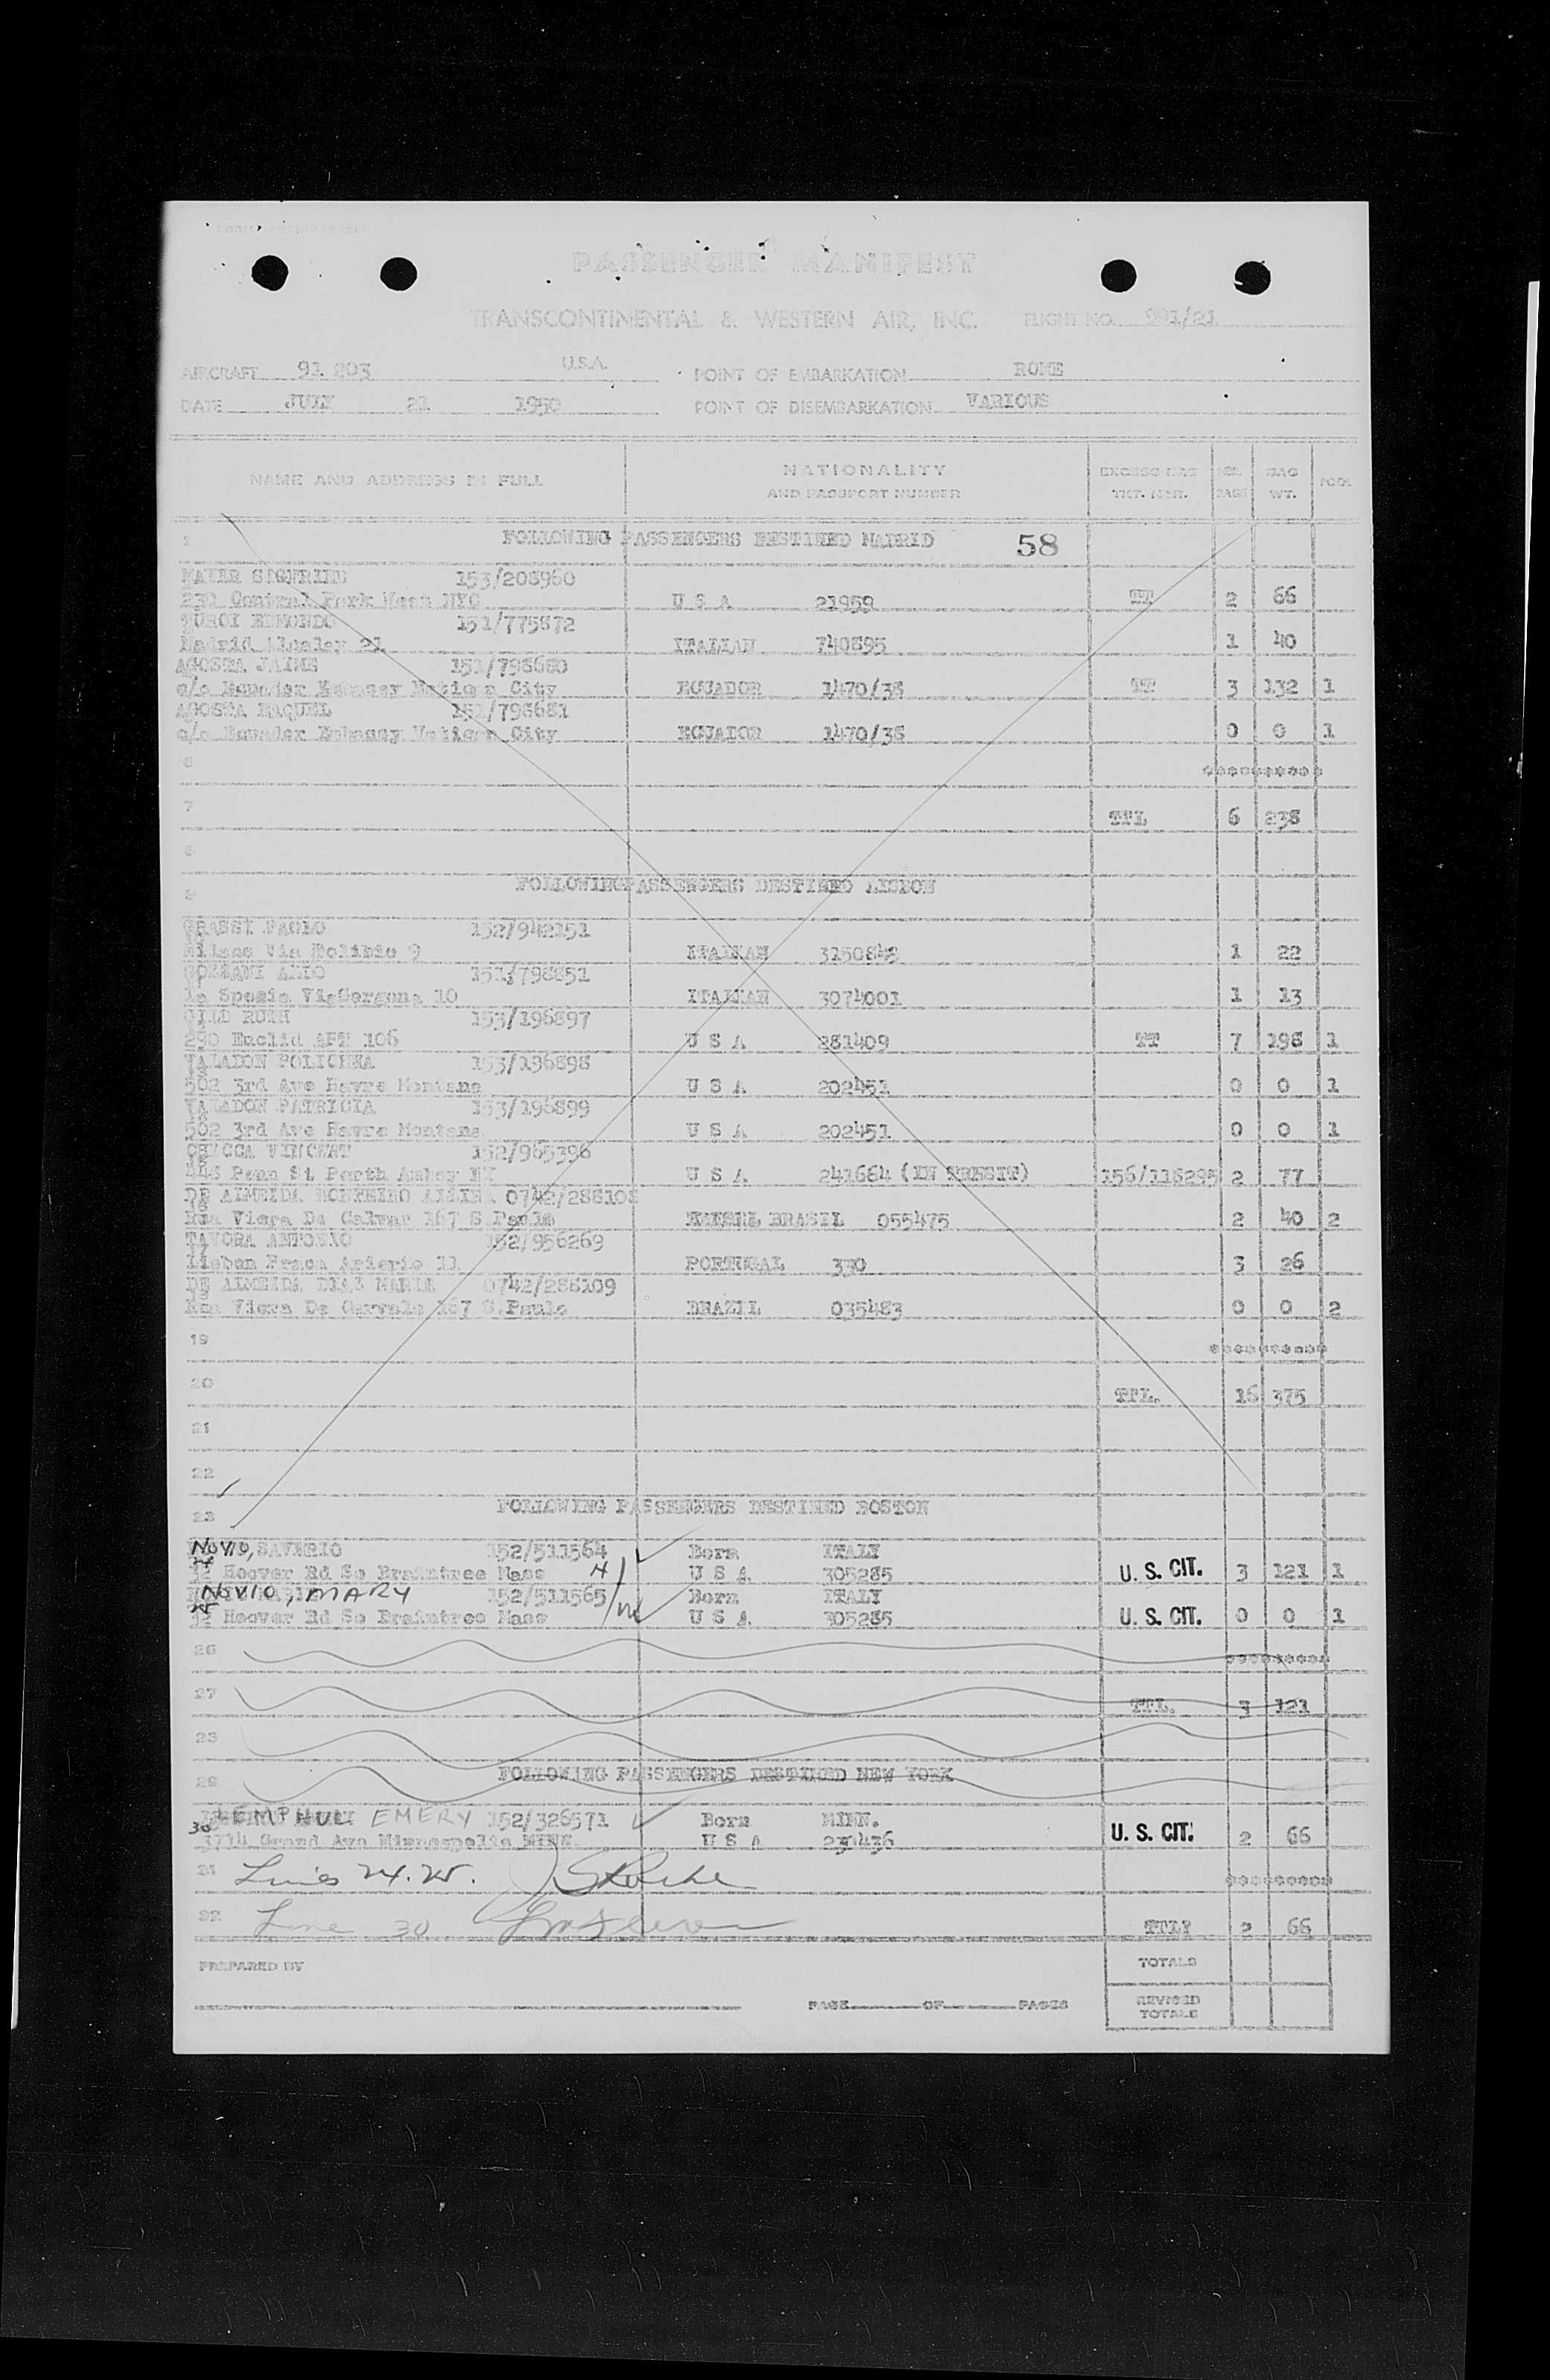 PASSENGER MANIFEST
TRANSCONTINENTAL & WESTERN AIR, INC. FLIGHT NO. 991/21
AIRCRAFT 91 203 U.S.A. POINT OF EMBARKATION ROME
DATE JULY 21 1950 POINT OF DISEMBARKATION VARIOUS
NAME AND ADDRESS IN FULL NATIONALITY AND PASSPORT NUMBER EXCESS BAG TKT. NBR. BAGS BAG WT.
1 FOLLOWING PASSENGERS DESTINED MADRID 58
MAYER SIGFRIED 153/208960
230 Central Park West NYC U S A 21959 TT 2 66
EDMONDO 151/775872
Madrid 21 ITALIAN 740895 1 40
ACOSTA JAIME 151/798680
c/o Ecuador Embassy Vatican City ECUADOR 1470/38 TT 3 132 1
ACOSTA RAQUEL 151/798681
c/o Ecuador Embassy Vatican City ECUADOR 1470/38 0 0 1
6 **********
7 TTL 6 238
8
9 FOLLOWINGPASSENGERS DESTINED LISBON
GRASSI PAOLO 152/942151
Milano Via Polibio 9 ITALIAN 3150848 1 22
ALDO 151/798851
La Spezia 10 ITALIAN 3074001 1 13
GILD RUTH 153/196897
290 Euclid APT 106 U S A 281409 TT 7 198 1
VALADON POLICENA 153/196898
502 3rd Ave Havre Montana U S A 202451 0 0 1
VALADON PATRICIA 153/196899
502 3rd Ave Havre Montana U S A 202451 0 0 1
VINCENT 152/965396
446 Penn St Perth Amboy U S A 241664 (IN TRNSIT) 156/118295 2 77
DE ALMEIDA 0742/288108
Rua Viera De 167 S Paulo BRASIL 055475 2 40 2
TAVORA ANTONIO 152/956269
Lisbon Praca 11 PORTUGAL 390 3 26
DE ALMEIDA DIAS MARIA 0742/288109
Rua Viera De 167 S.Paulo BRAZIL 035483 0 0 2
19 **********
20 TTL. 16 375
21
22
23 FOLLOWING PASSENGERS DESTINED BOSTON
NOVIO, SAVERIO 152/511564 Born ITALY
32 Hoover Rd So Braintree Mass U S A 305285 U. S. CIT. 3 121 1
NOVIO, MARY 152/511565 Born ITALY
32 Hoover Rd So Braintree Mass U S A 305285 U. S. CIT. 0 0 1
26 *********
27 TTL. 3 121
28
29 FOLLOWING PASSENGERS DESTINED NEW YORK
30 EMERY 152/326571 Born MINN.
3714 Grand Ave Minneapolis MINN U S A 230436 U. S. CIT. 2 66
31 Lines 24. 25. *********
32 Line 30 TTL 2 66
PREPARED BY TOTALS
PAGE OF PAGES REVISED TOTALS